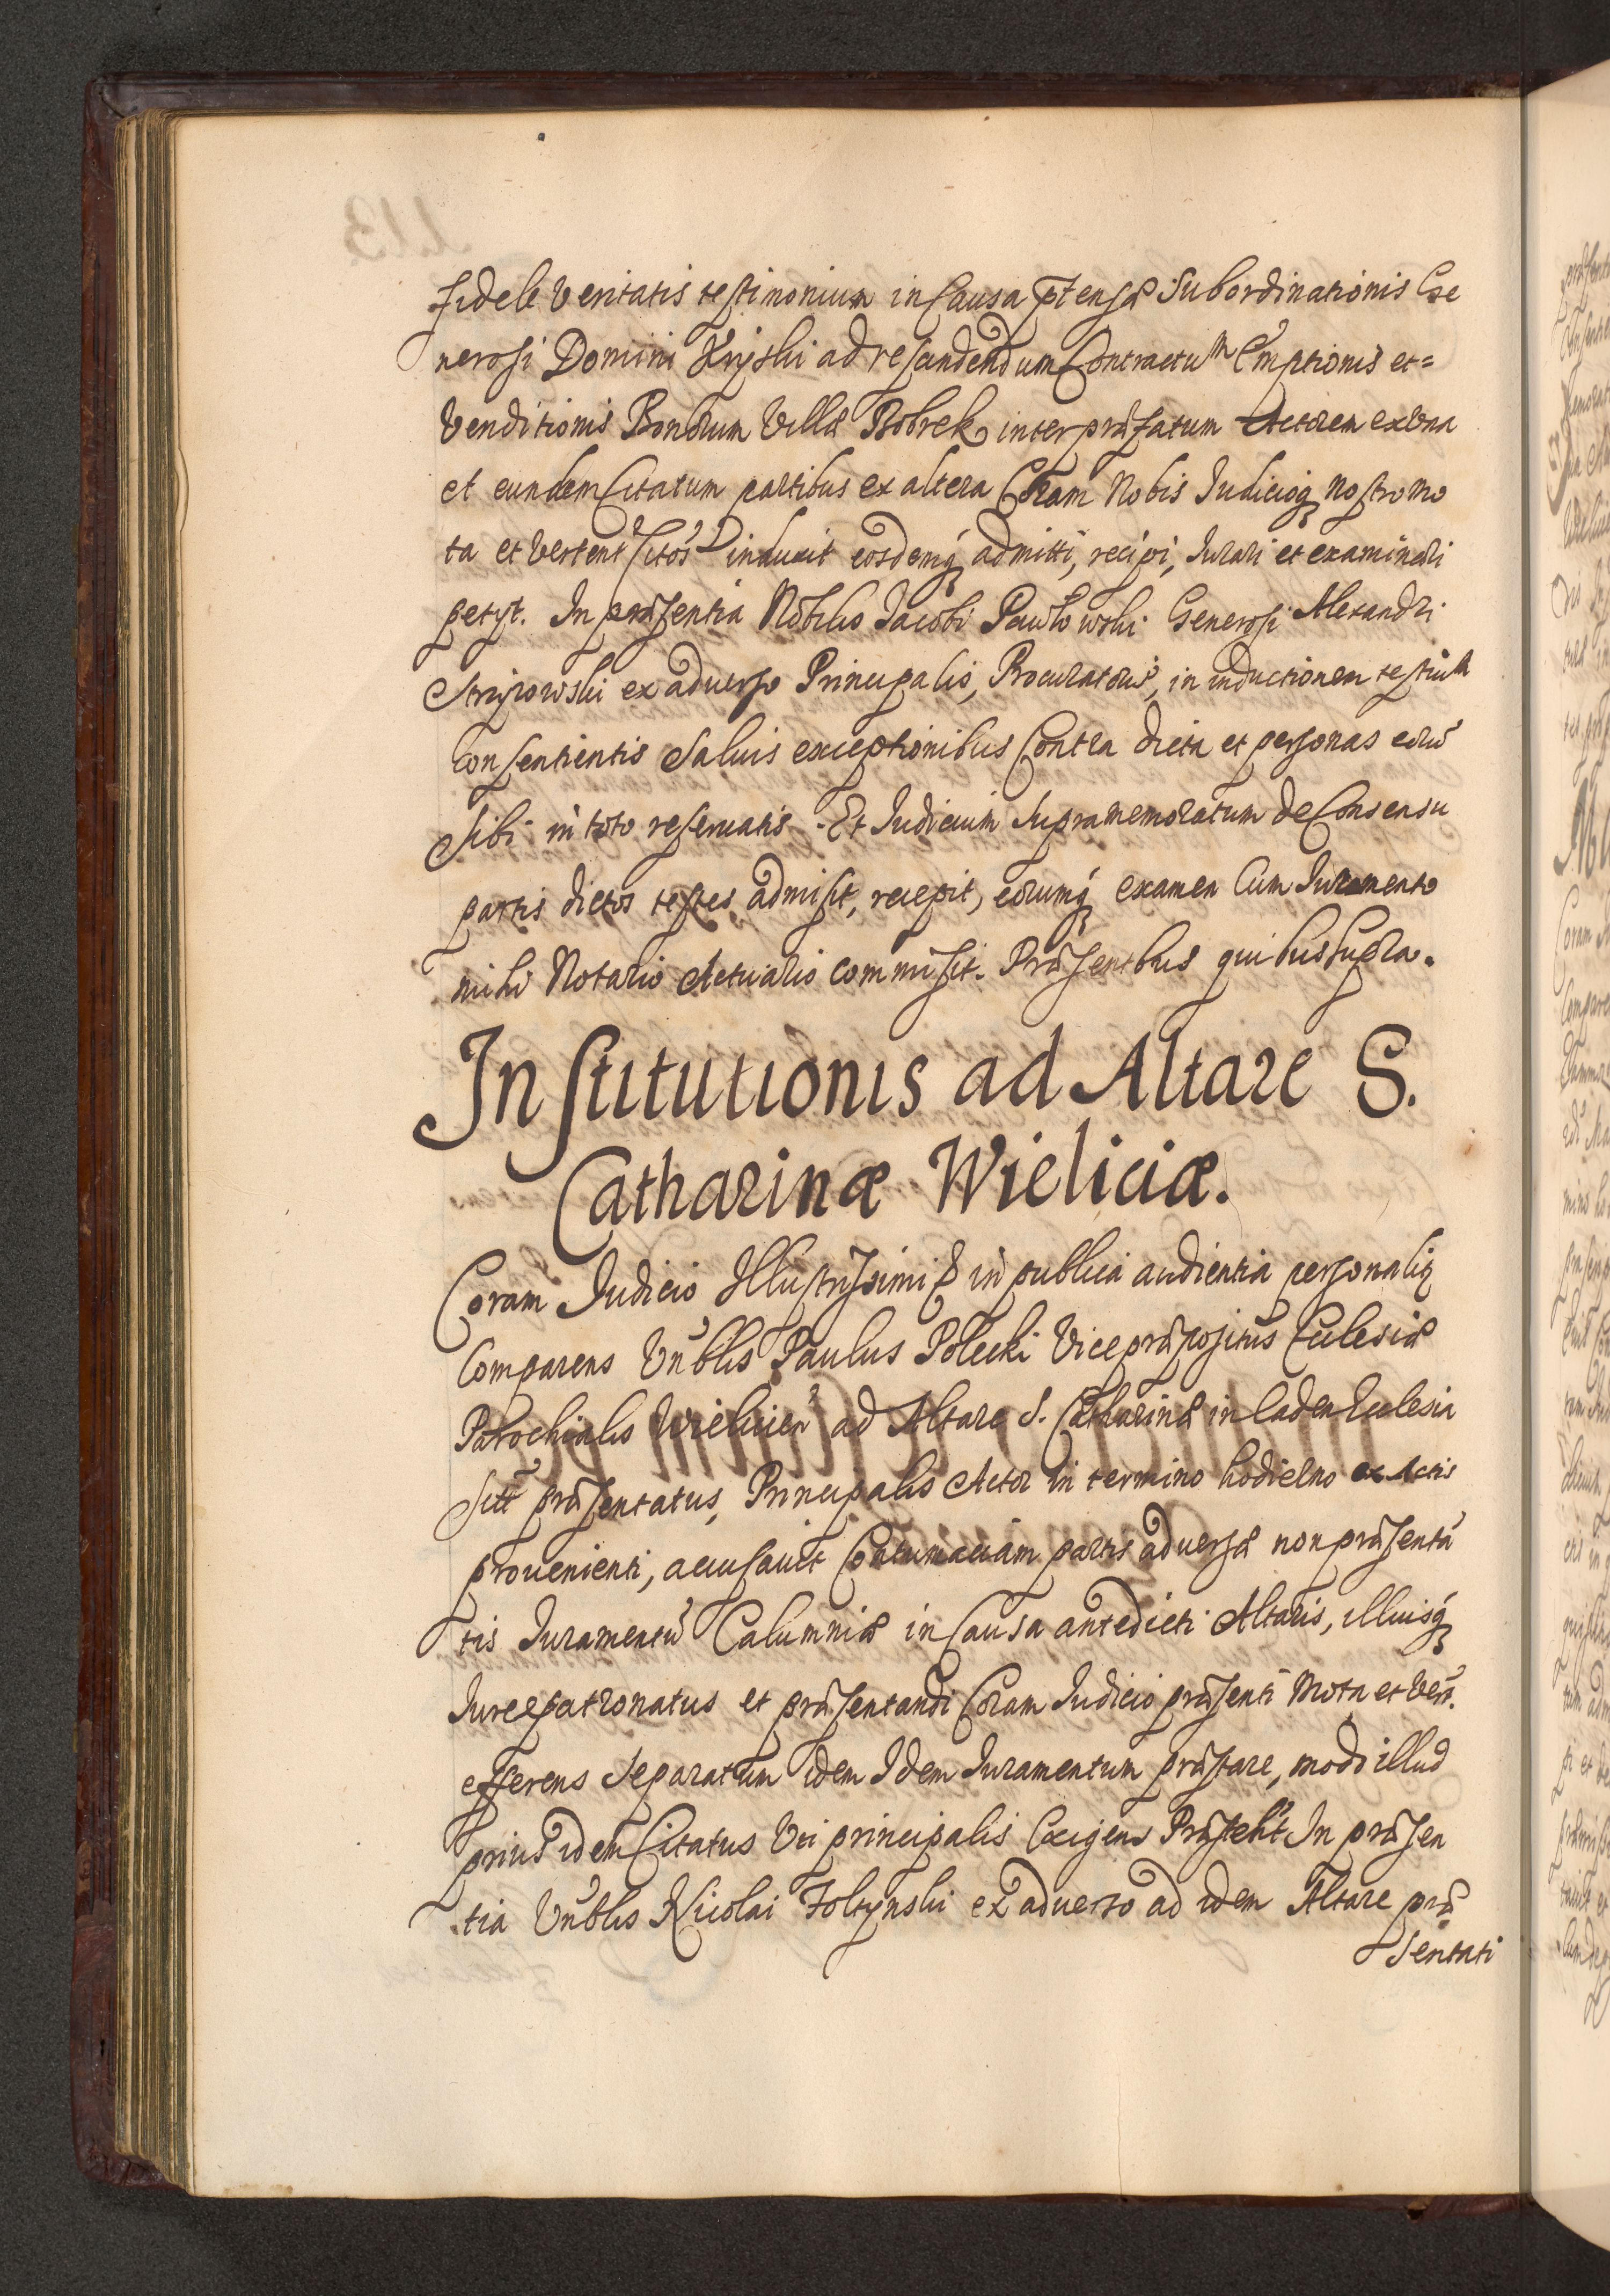 fidele veritatis testimonium in Causa ptensæ Subordinationis Ge
nerosi Domini ad rescindendum Contractum Emptionis et=
Venditionis Bonorum Villæ Bobrek inter præfatum Actorem ex una
et eundem Citatum partibus ex altera Coram Nobis Judicioq nostro mo
ta et vertent induxit eosdemq admitti, recipi, Iurari et examinari
petyt. In præsentia Nobilis Jacobi Pawłowski Generosi Alexandri
Stryiowski ex aduerso Principalis, Procuratoris, in inductionem testium
consentientis Saluis exceptionibus Contra dicta et personas eorũ
Sibi in toto reseruatis. Et Judicium Supramemoratum de Consensu
partis dictos testes admisit, recepit, eorumq examen Cum Iuramento
mihi Notario Actuario commisit. Præsentbus quibus supra.
Institutionis ad Altare S.
Catharinæ Wieliciæ.
Coram Judicio Illustrissimi & in publica audientia personaliq
Comparens Vnblis Paulus Polecki Vicepræpositus Ecclesiæ
Parochialis Wielicien ad Altare S. Catharinæ in eadem Ecclesia
Sitt præsentatus, Principalis Actor in termino hodierno ex Actis
prouenienti, accusauit Contumaciam partis aduersæ non præsentã
tis Iuramentũ Calumniæ in Causa antedicti Altaris, illiusq
Iurepatronatus et præsentandi Coram Judicio præsenti Mota et vert.
efferens Separatum idem Idem Iuramentum præstare, modo illud
prius idem Citatus Vti principalis Exigens Præstent In præsen
tia Vnblis Nicolai Foltynski ex aduerso ad idem Altare præ
sentati